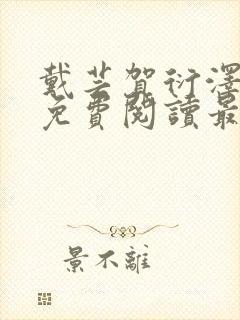 戴芸賀衍澤
免費閱讀最
景不離